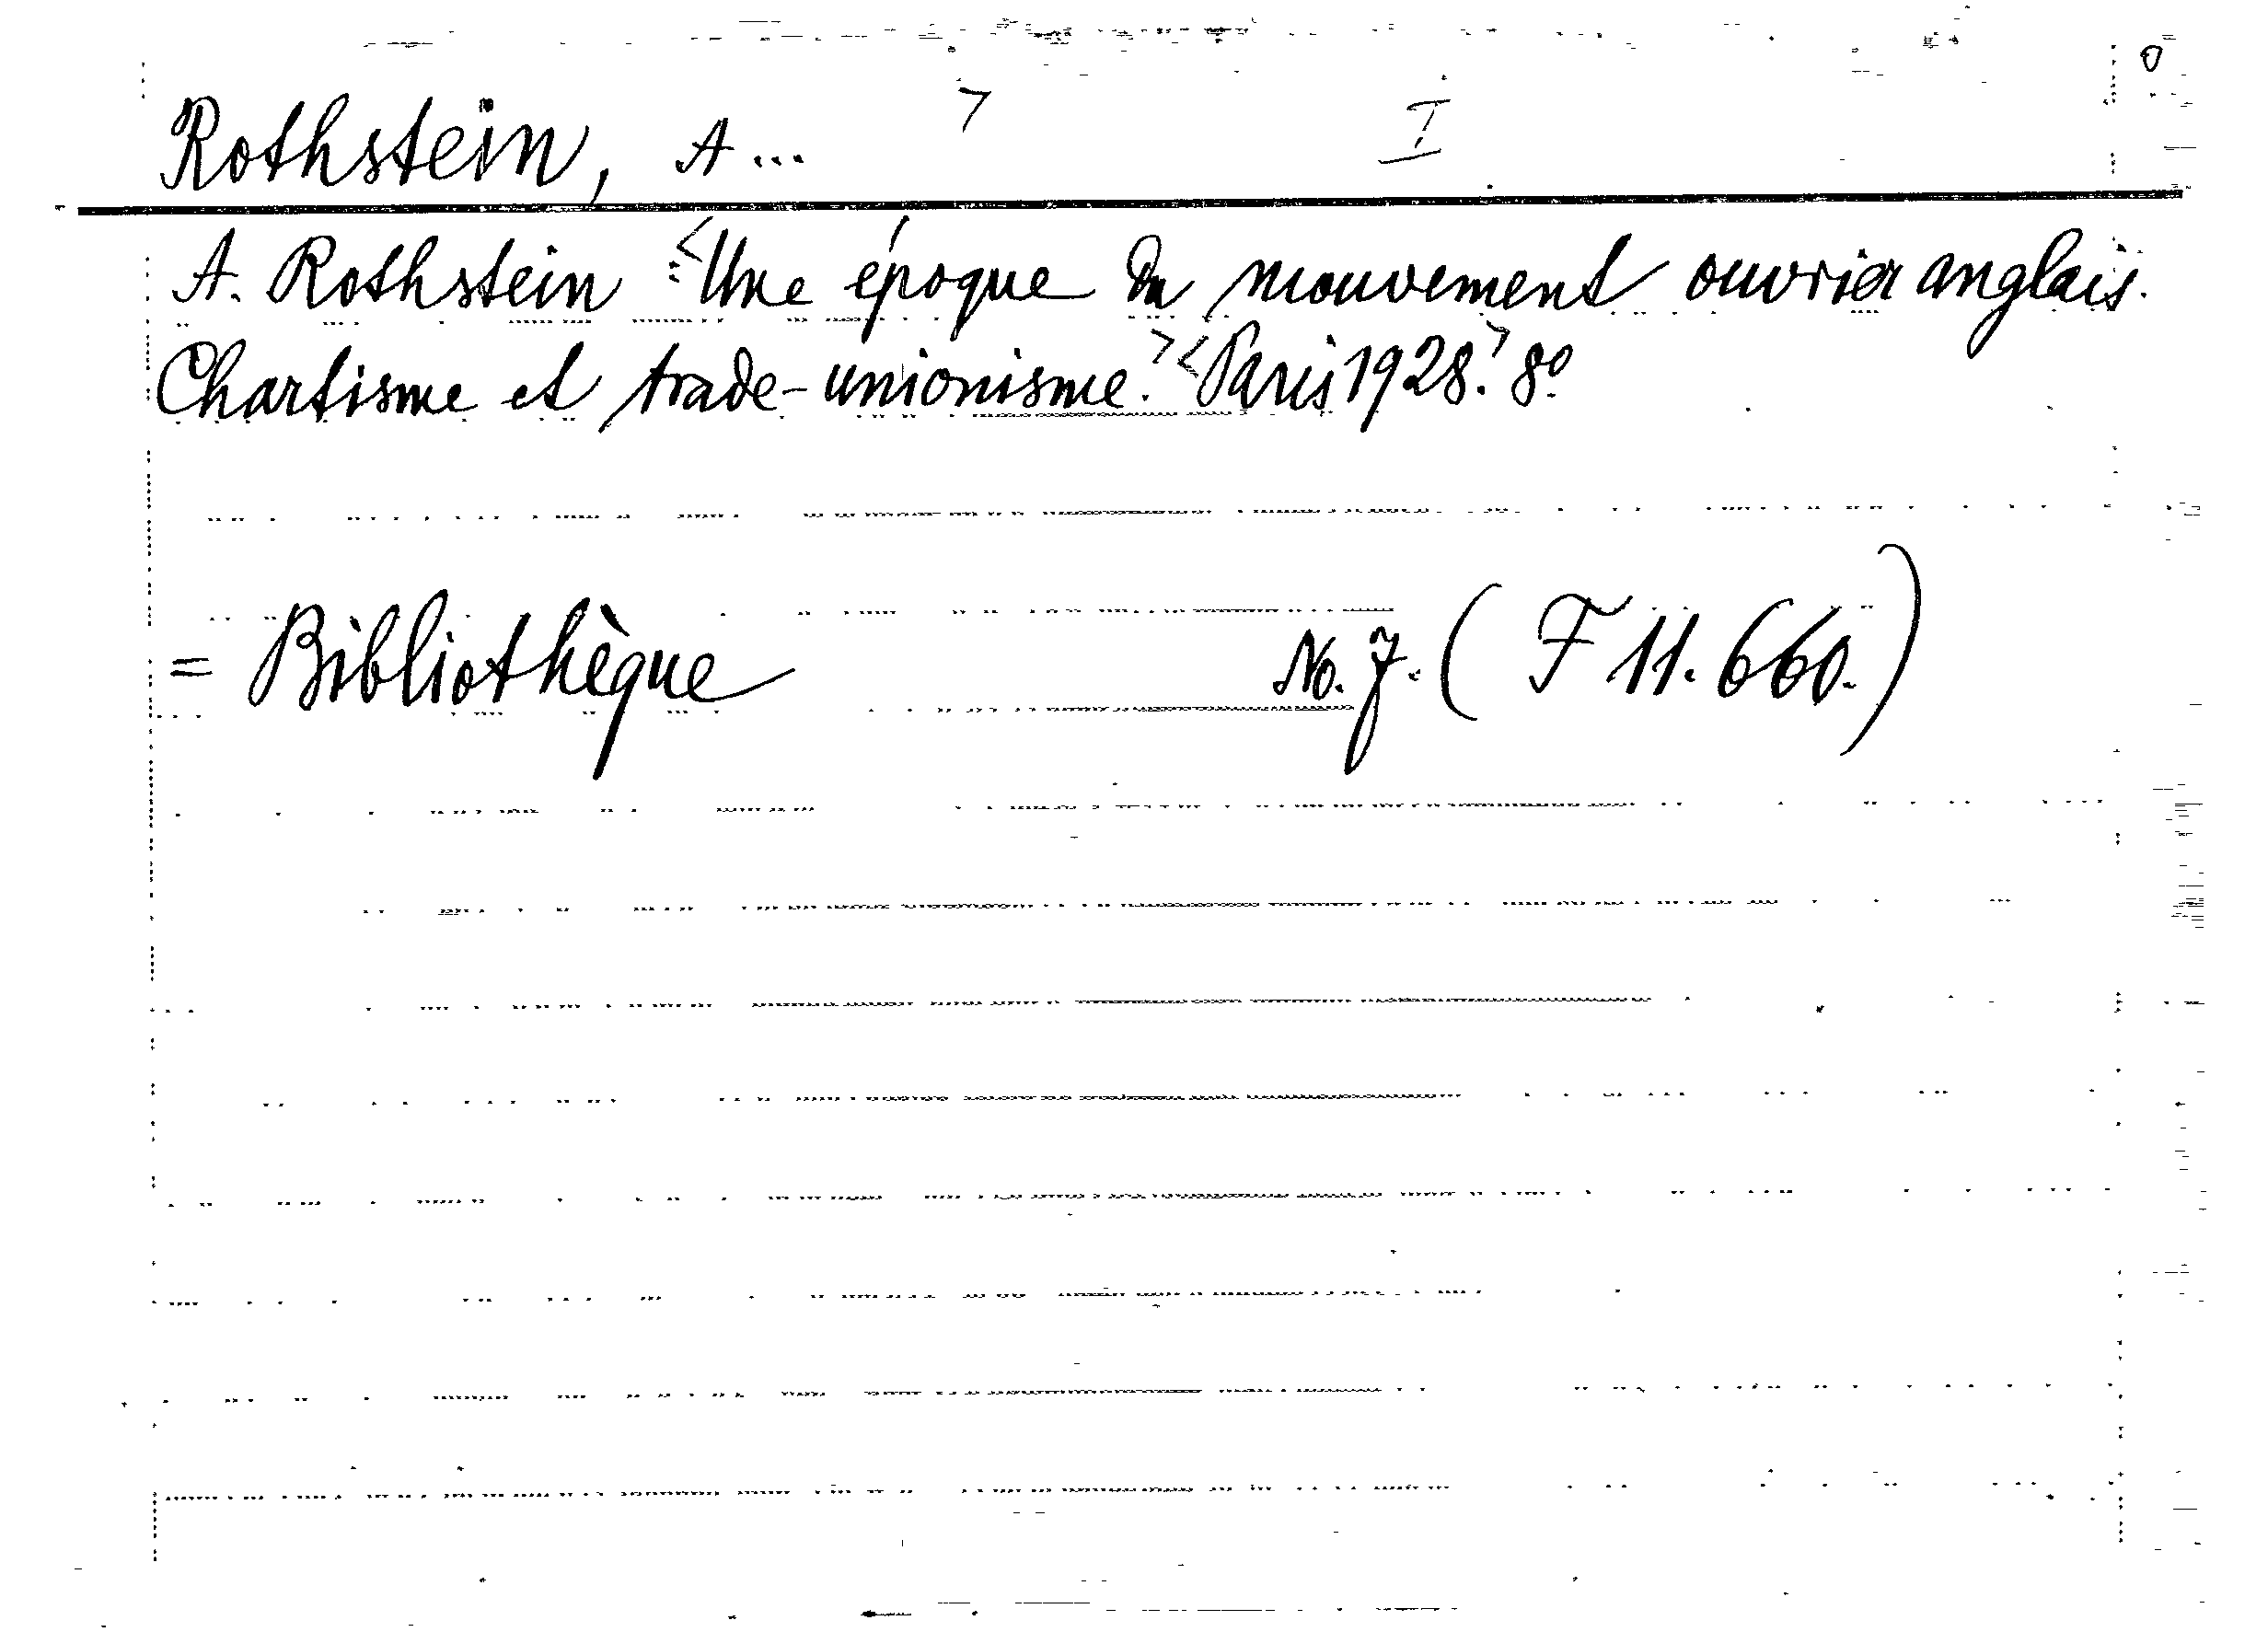 Rothstein, A... > I 0
A. Rothstein : <Une époque du mouvement ouvrier anglais.
Chartisme et trade-unionisme.> <Paris 1928.> 8º.
= Bibliothèque No. 7. (F 11.660.)